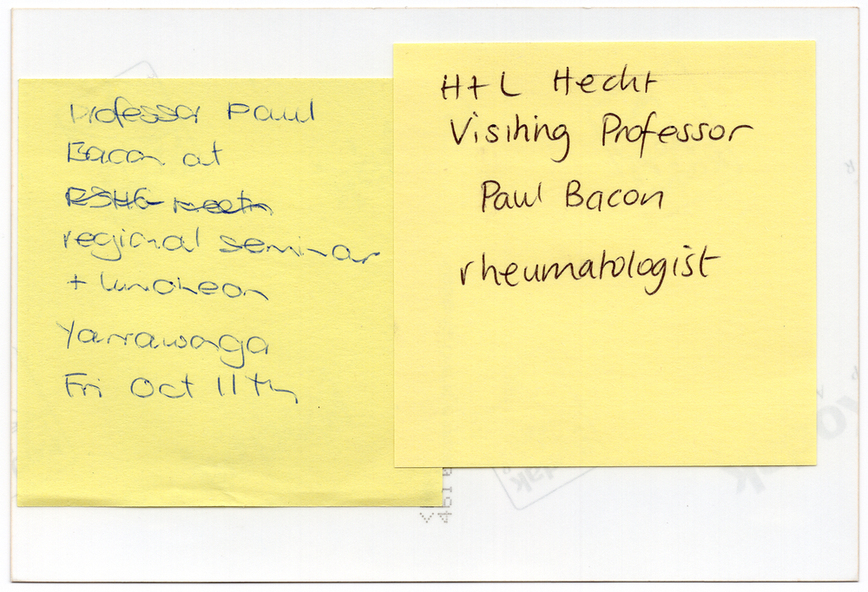 Professor Paul
Bacon at
RSHG meetn
regional seminar
+ luncheon
Yarrawonga
Fri Oct 11th
H+L Hecht
Visiting Professor
Paul Bacon
rheumatologist